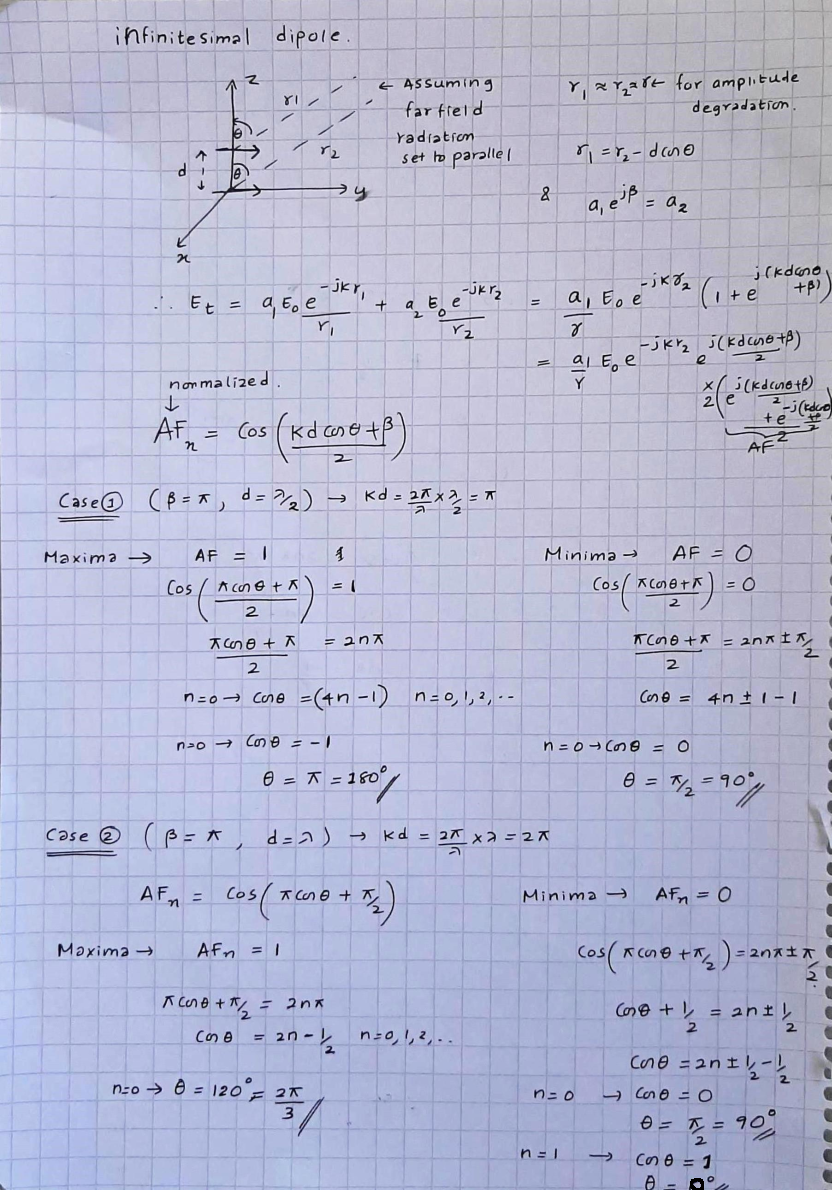 infinitesimal dipole.
z
r1
r2
θ
θ
d
y
x
← Assuming
far field
radiation
set to parallel
r₁ ≈ r₂ ≈ r ← for amplitude
degradation.
r₁ = r₂ - d cosθ
& a₁ e^{jβ} = a₂
∴ E_t = a₁ E₀ e^{-jkr₁}/r₁ + a₂ E₀ e^{-jkr₂}/r₂ = a₁/r E₀ e^{-jkr₂} (1 + e^{j(kdcosθ+β)})
= a₁/r E₀ e^{-jkr₂} e^{j(kdcosθ+β)/2}
×2 (e^{j(kdcosθ+β)/2} + e^{-j(kdcosθ+β)/2})
AF
normalized.
↓
AFₙ = cos((kd cosθ + β)/2)
Case ① (β = π, d = λ/2) → kd = 2π/λ × λ/2 = π
Maxima → AF = 1
cos((π cosθ + π)/2) = 1
(π cosθ + π)/2 = 2nπ
n=0 → cosθ = (4n - 1) n = 0, 1, 2, ..
n=0 → cosθ = -1
θ = π = 180°
Minima → AF = 0
cos((π cosθ + π)/2) = 0
(π cosθ + π)/2 = 2nπ ± π/2
cosθ = 4n ± 1 - 1
n = 0 → cosθ = 0
θ = π/2 = 90°
Case ② (β = π, d = λ) → kd = 2π/λ × λ = 2π
AFₙ = cos(π cosθ + π/2)
Maxima → AFₙ = 1
π cosθ + π/2 = 2nπ
cosθ = 2n - 1/2 n = 0, 1, 2, ..
n=0 → θ = 120° = 2π/3
Minima → AFₙ = 0
cos(π cosθ + π/2) = 2nπ ± π/2
cosθ + 1/2 = 2n ± 1/2
cosθ = 2n ± 1/2 - 1/2
n = 0 → cosθ = 0
θ = π/2 = 90°
n = 1 → cosθ = 1
θ = 0°